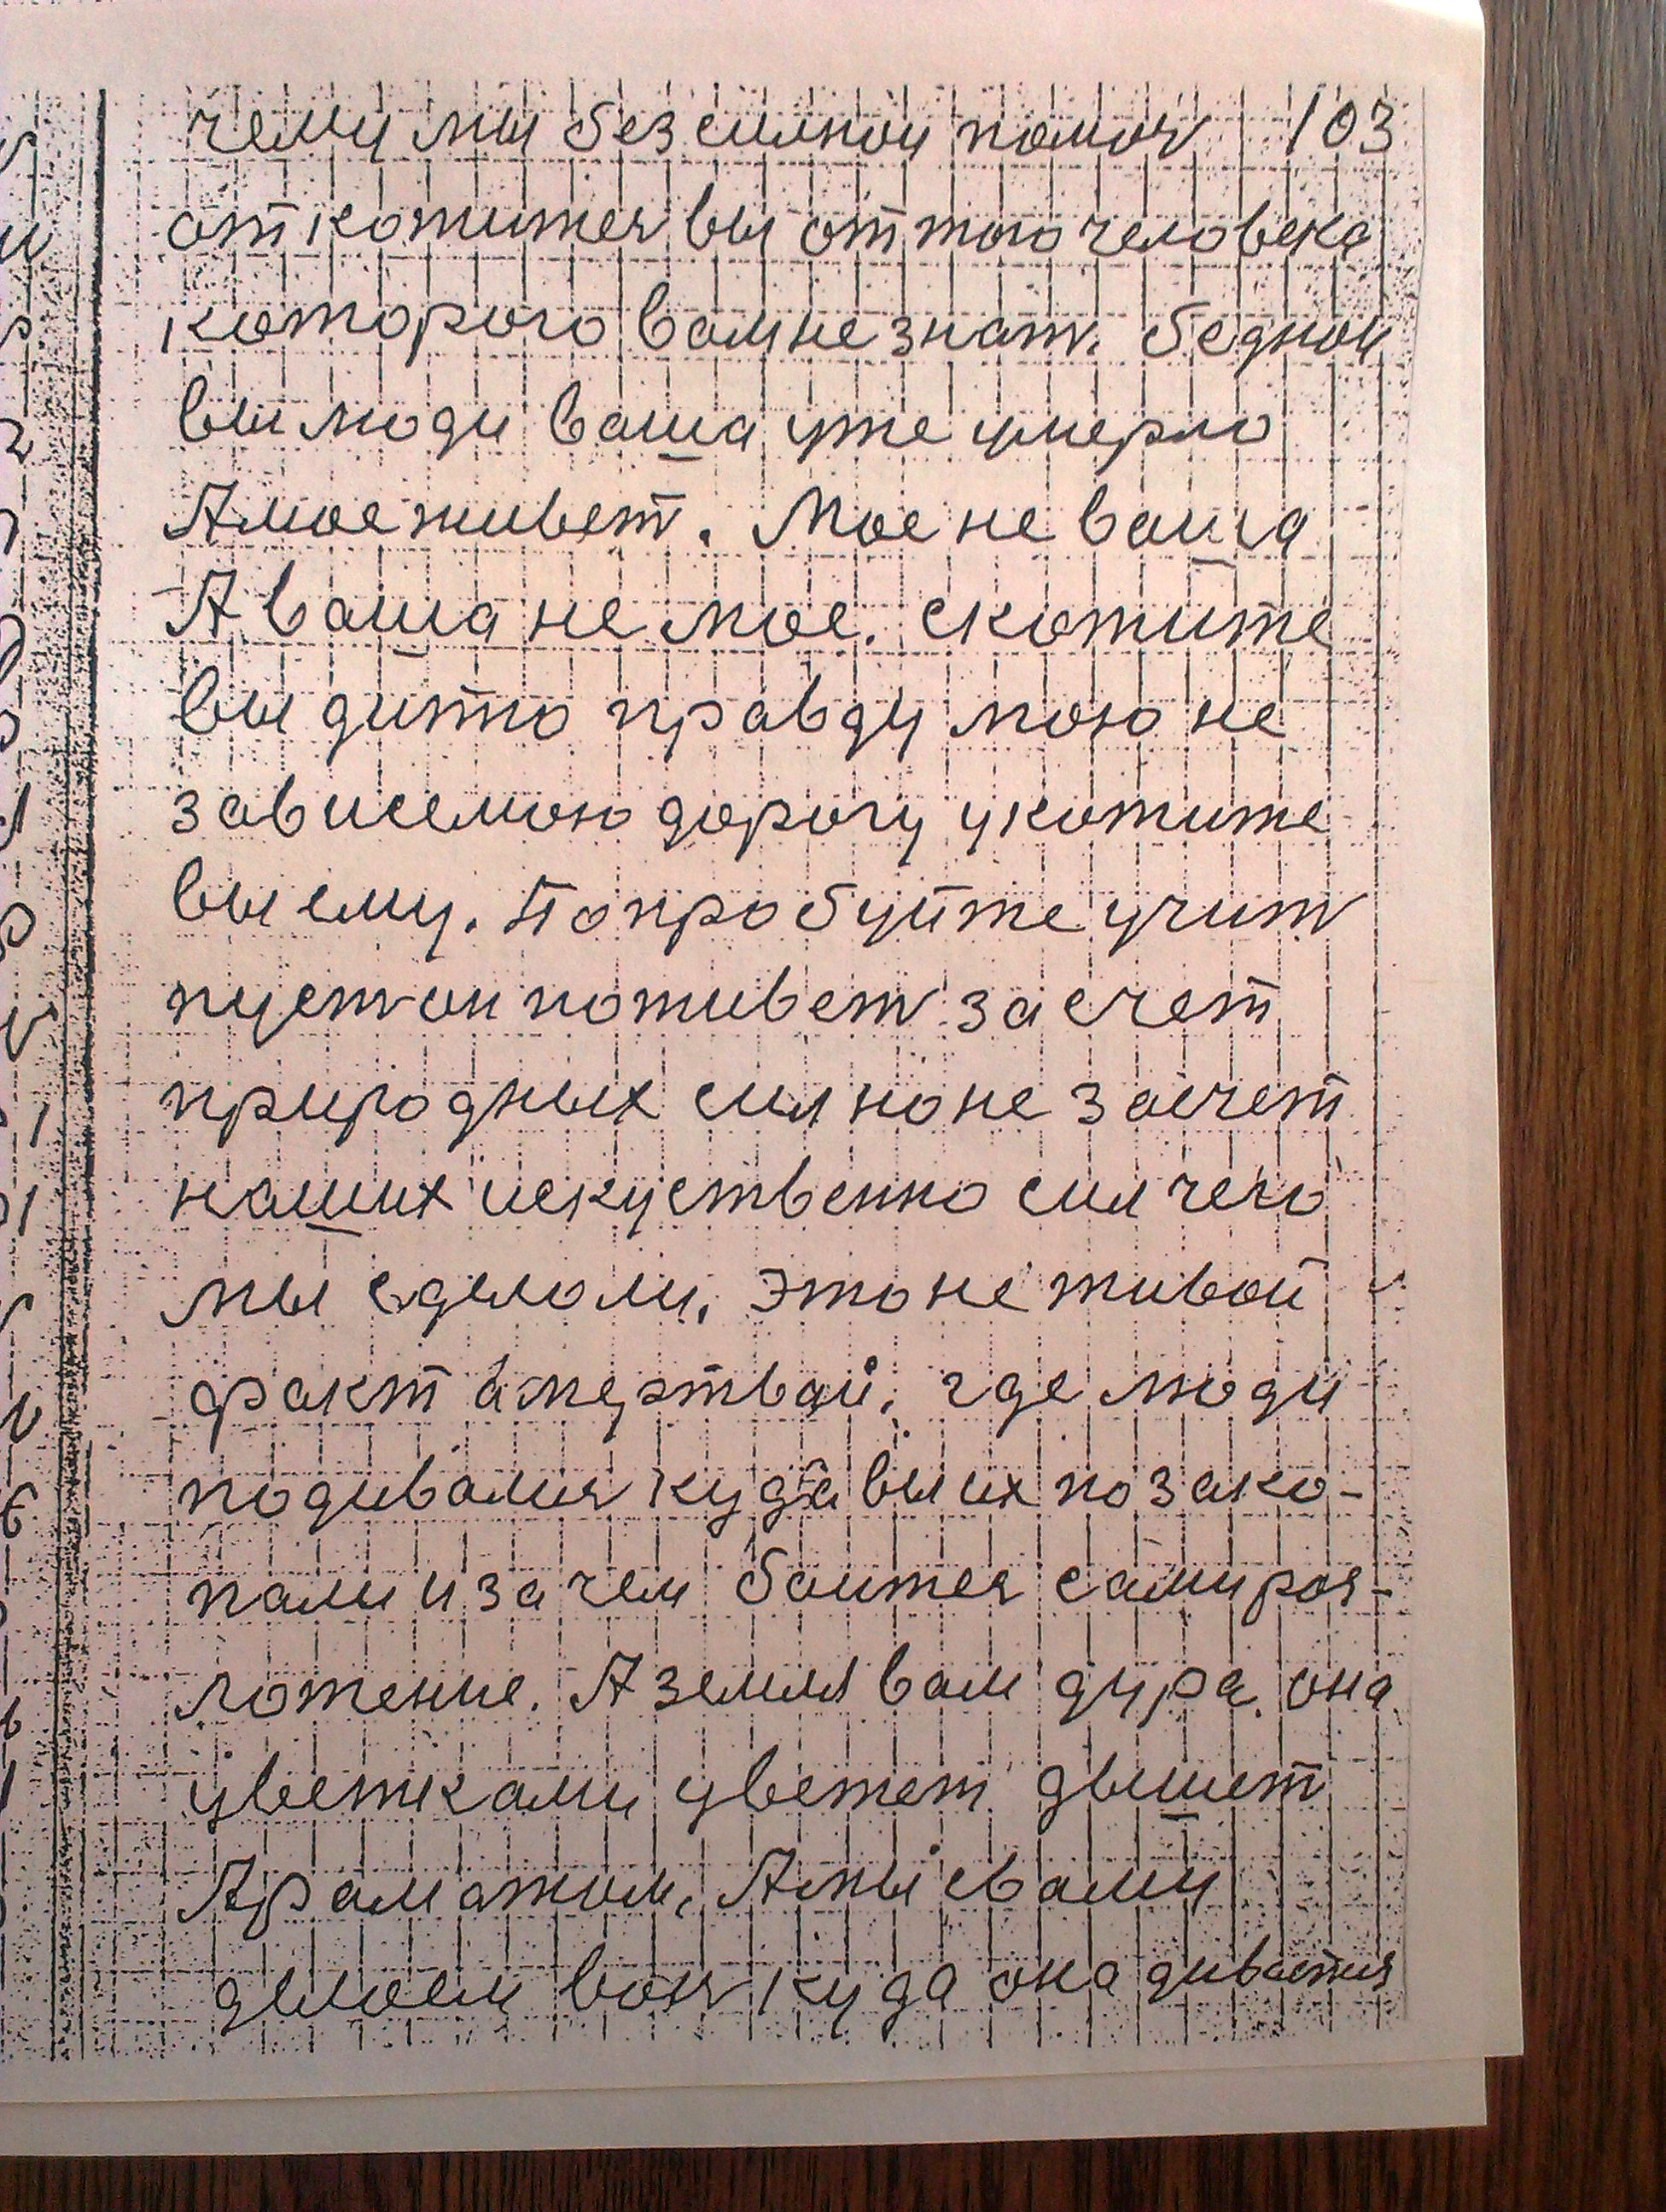 чему мы без силной помоч 103
откожитися вы от того человека
которого вам не знат. бедной
вы люди ваша уже умерло
А мое живет. Мое не ваша
А ваша не мое. скотите
вы дитю правду мою не
зависемою дорогу укотите
вы ему. Попробуйте учит
пуст он поживет за счет
природных сил но не за счет
наших искуственно сил чего
мы сделоли, это не живой
факт а мертвай, где люди
подивалися куда вы их позако-
пали и зачем боитеся сами роз-
ложение. А земля вам дура. она
цветками цветет дышит
Араматом, А мы с вами
делоем вонь куда она дивается